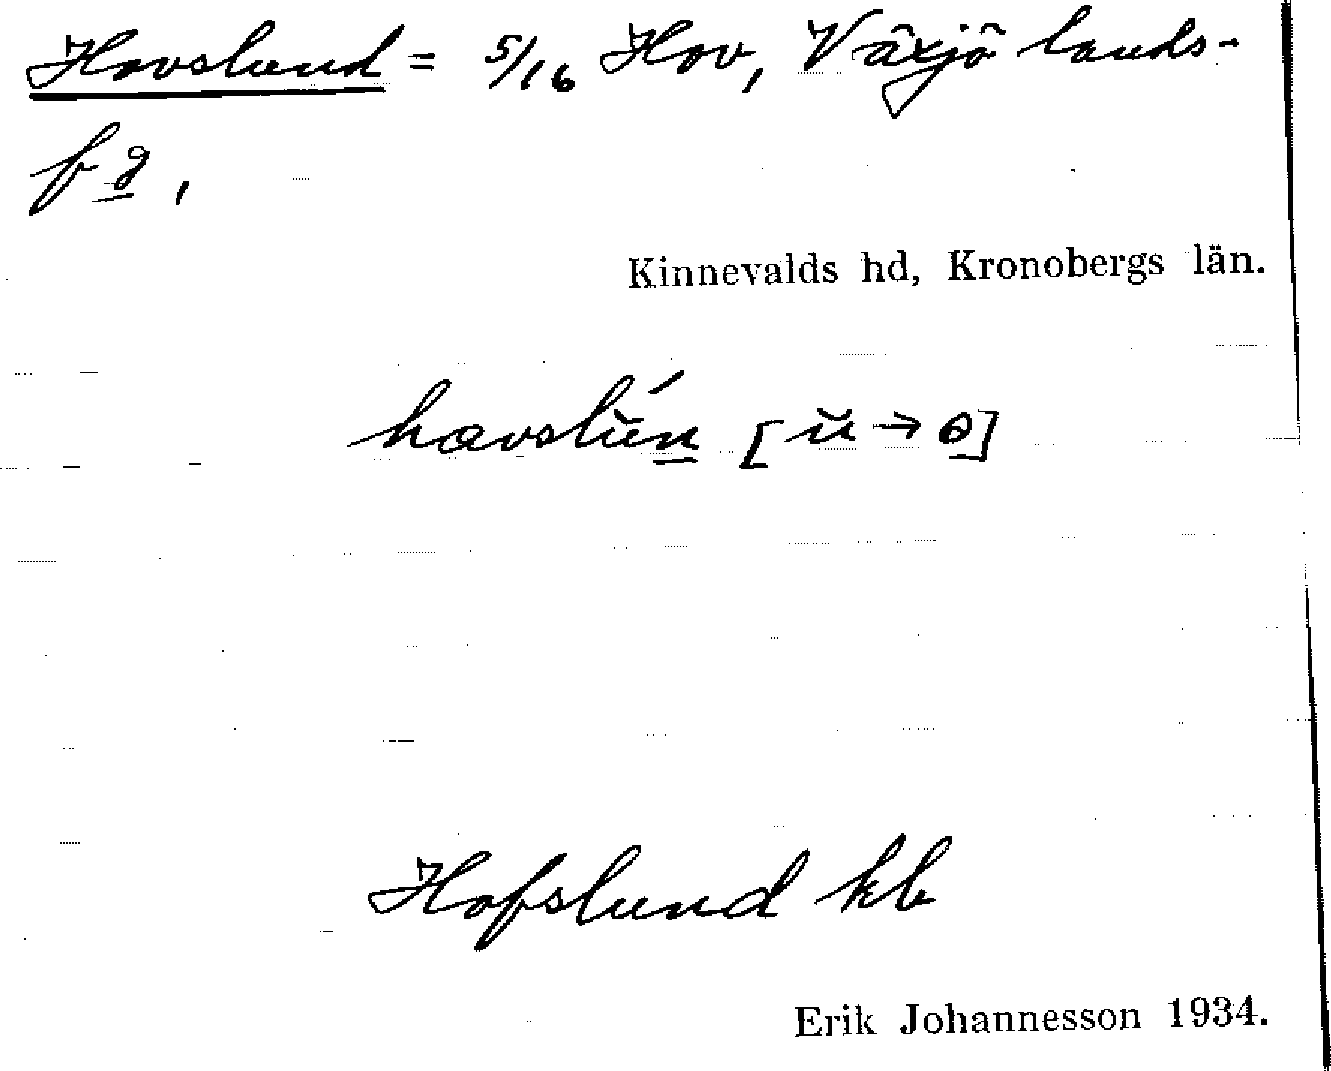 Hovslund = 5/16 Hov, Växjö lands-
fg,
Kinnevalds hd, Kronobergs län.
hovslŭ́n [ŭ → ɵ]
Hofslund kb
Erik Johannesson 1934.